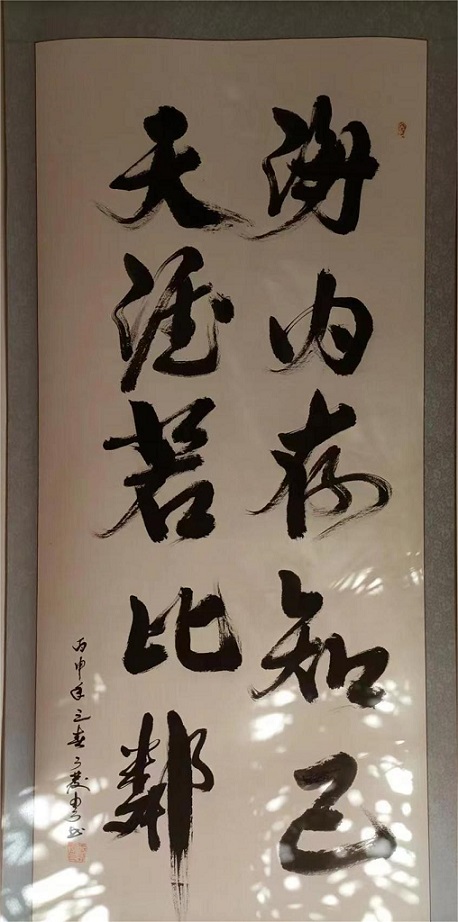 海内存知己
天涯若比鄰
丙申年之春